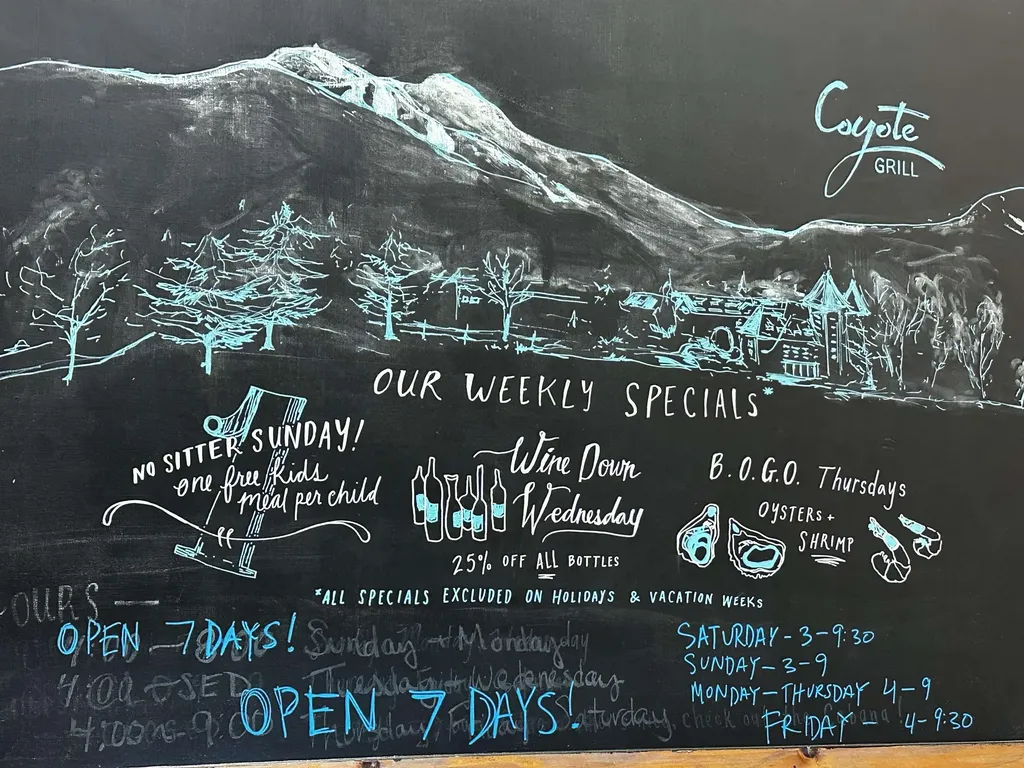 Coyote
GRILL
OUR WEEKLY SPECIALS*
NO SITTER SUNDAY!
one free kids
meal per child
Wine Down
Wednesday
25% OFF ALL BOTTLES
B.O.G.O. Thursdays
OYSTERS +
SHRIMP
*ALL SPECIALS EXCLUDED ON HOLIDAYS & VACATION WEEKS
OURS —
OPEN 7 DAYS!
Sunday + Monday
Wednesday
OPEN 7 DAYS!
Saturday, check out
SATURDAY - 3 - 9:30
SUNDAY - 3 - 9
MONDAY - THURSDAY 4 - 9
FRIDAY - 4 - 9:30